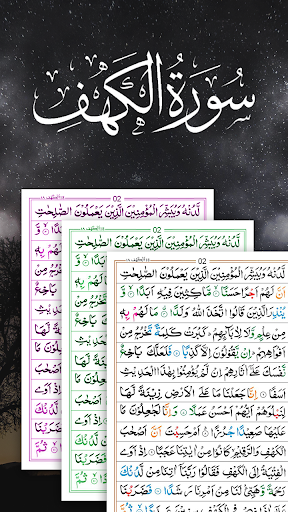 سُورَةُ الكَهْفِ
02
لَّدُنْهُ وَيُبَشِّرَ الْمُؤْمِنِيْنَ الَّذِيْنَ يَعْمَلُوْنَ الصّٰلِحٰتِ
02
لَّدُنْهُ وَيُبَشِّرَ الْمُؤْمِنِيْنَ الَّذِيْنَ يَعْمَلُوْنَ الصّٰلِحٰتِ
02
لَّدُنْهُ وَيُبَشِّرَ الْمُؤْمِنِيْنَ الَّذِيْنَ يَعْمَلُوْنَ الصّٰلِحٰتِ
اَنَّ لَهُمْ اَجْرًا حَسَنًا ۝ مَّاكِثِيْنَ فِيْهِ اَبَدًا ۝ وَّ
يُنْذِرَ الَّذِيْنَ قَالُوا اتَّخَذَ اللّٰهُ وَلَدًا ۝ مَا لَهُمْ بِهٖ
مِنْ عِلْمٍ وَّلَا لِاٰبَآئِهِمْ كَبُرَتْ كَلِمَةً تَخْرُجُ مِنْ
اَفْوَاهِهِمْ اِنْ يَّقُوْلُوْنَ اِلَّا كَذِبًا ۝ فَلَعَلَّكَ بَاخِعٌ
نَّفْسَكَ عَلٰٓى اٰثَارِهِمْ اِنْ لَّمْ يُؤْمِنُوْا بِهٰذَا الْحَدِيْثِ
اَسَفًا ۝ اِنَّا جَعَلْنَا مَا عَلَى الْاَرْضِ زِيْنَةً لَّهَا
لِنَبْلُوَهُمْ اَيُّهُمْ اَحْسَنُ عَمَلًا ۝ وَاِنَّا لَجٰعِلُوْنَ مَا
عَلَيْهَا صَعِيْدًا جُرُزًا ۝ اَمْ حَسِبْتَ اَنَّ اَصْحٰبَ
الْكَهْفِ وَالرَّقِيْمِ كَانُوْا مِنْ اٰيٰتِنَا عَجَبًا ۝ اِذْ اَوَى
الْفِتْيَةُ اِلَى الْكَهْفِ فَقَالُوْا رَبَّنَآ اٰتِنَا مِنْ لَّدُنْكَ
رَحْمَةً وَّهَيِّئْ لَنَا مِنْ اَمْرِنَا رَشَدًا ۝ فَضَرَبْنَا